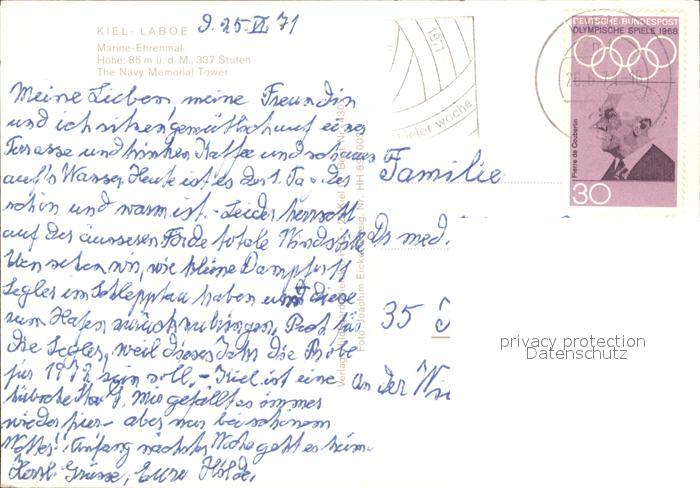 KIEL - LABOE
D. 25. VI. 71
Marine-Ehrenmal
Höhe: 85 m ü. d. M., 337 Stufen
The Navy Memorial Tower
Meine Lieben, meine Freundin
und ich sitzen gemütlich auf einer
Terrasse und trinken Kaffee und schauen
auf's Wasser. Heute ist es der 1. Tag der
schön und warm ist. - Leider herrscht
auf der äusseren Förde totale Windstille
sehen wir, wie kleine Dampfer
Segler im Schlepptau haben um diese
zum Hafen zurück zu bringen. Pech für
die Segler, weil dieses Jahr die Probe
für 1972 sein soll. - Kiel ist eine
hübsche Stadt. Mir gefällt es immer
wieder hier - aber nur bei schönem
Wetter! Anfang nächster Woche geht es heim.
Herzl. Grüsse, Eure Hilde.
1971
kieler woche
DEUTSCHE BUNDESPOST
OLYMPISCHE SPIELE 1968
Pierre de Coubertin
30
Familie
Dr med.
35
An der
privacy protection
Datenschutz